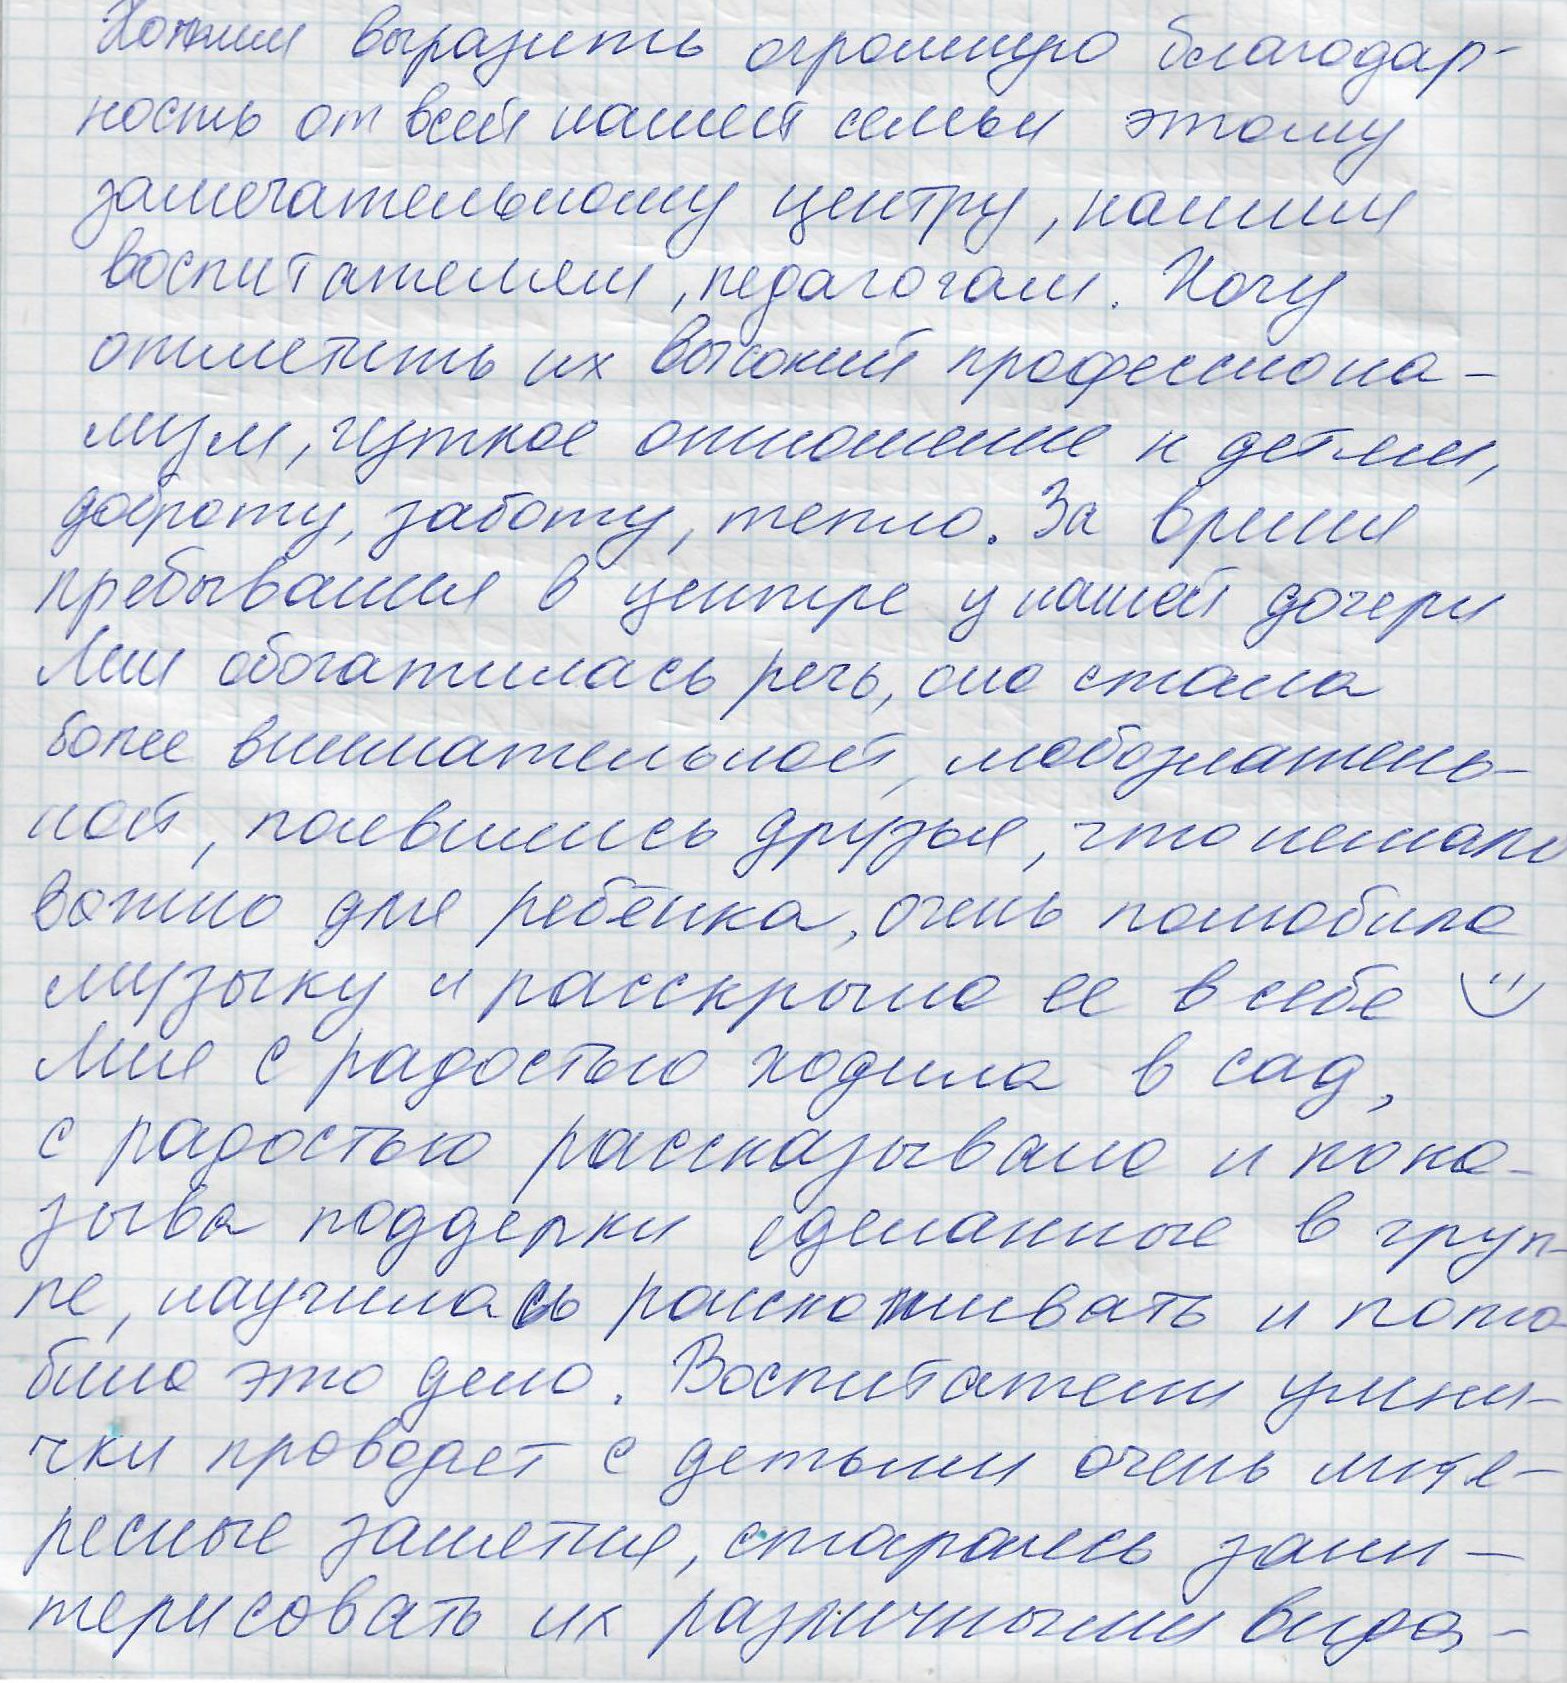 Хотим выразить огромную благодар-
ность от всей нашей семьи этому
замечательному центру, нашим
воспитателям, педагогам. Хочу
отметить их высокий профессиона-
лизм, чуткое отношение к детям,
доброту, заботу, тепло. За время
пребывания в центре у нашей дочери
Мии обогатилась речь, она стала
более внимательной, любознатель-
ной, появились друзья, что немало
важно для ребёнка, очень полюбила
музыку и расскрыла ее в себе
Мия с радостью ходила в сад,
с радостью рассказывала и пока-
зыва поддерки сделанные в груп-
пе, научилась и полю
била это дело. Воспитатели умни-
чки проводят с детьми очень инте-
ресные занятия, стараясь заин-
терисовать их различными вида-